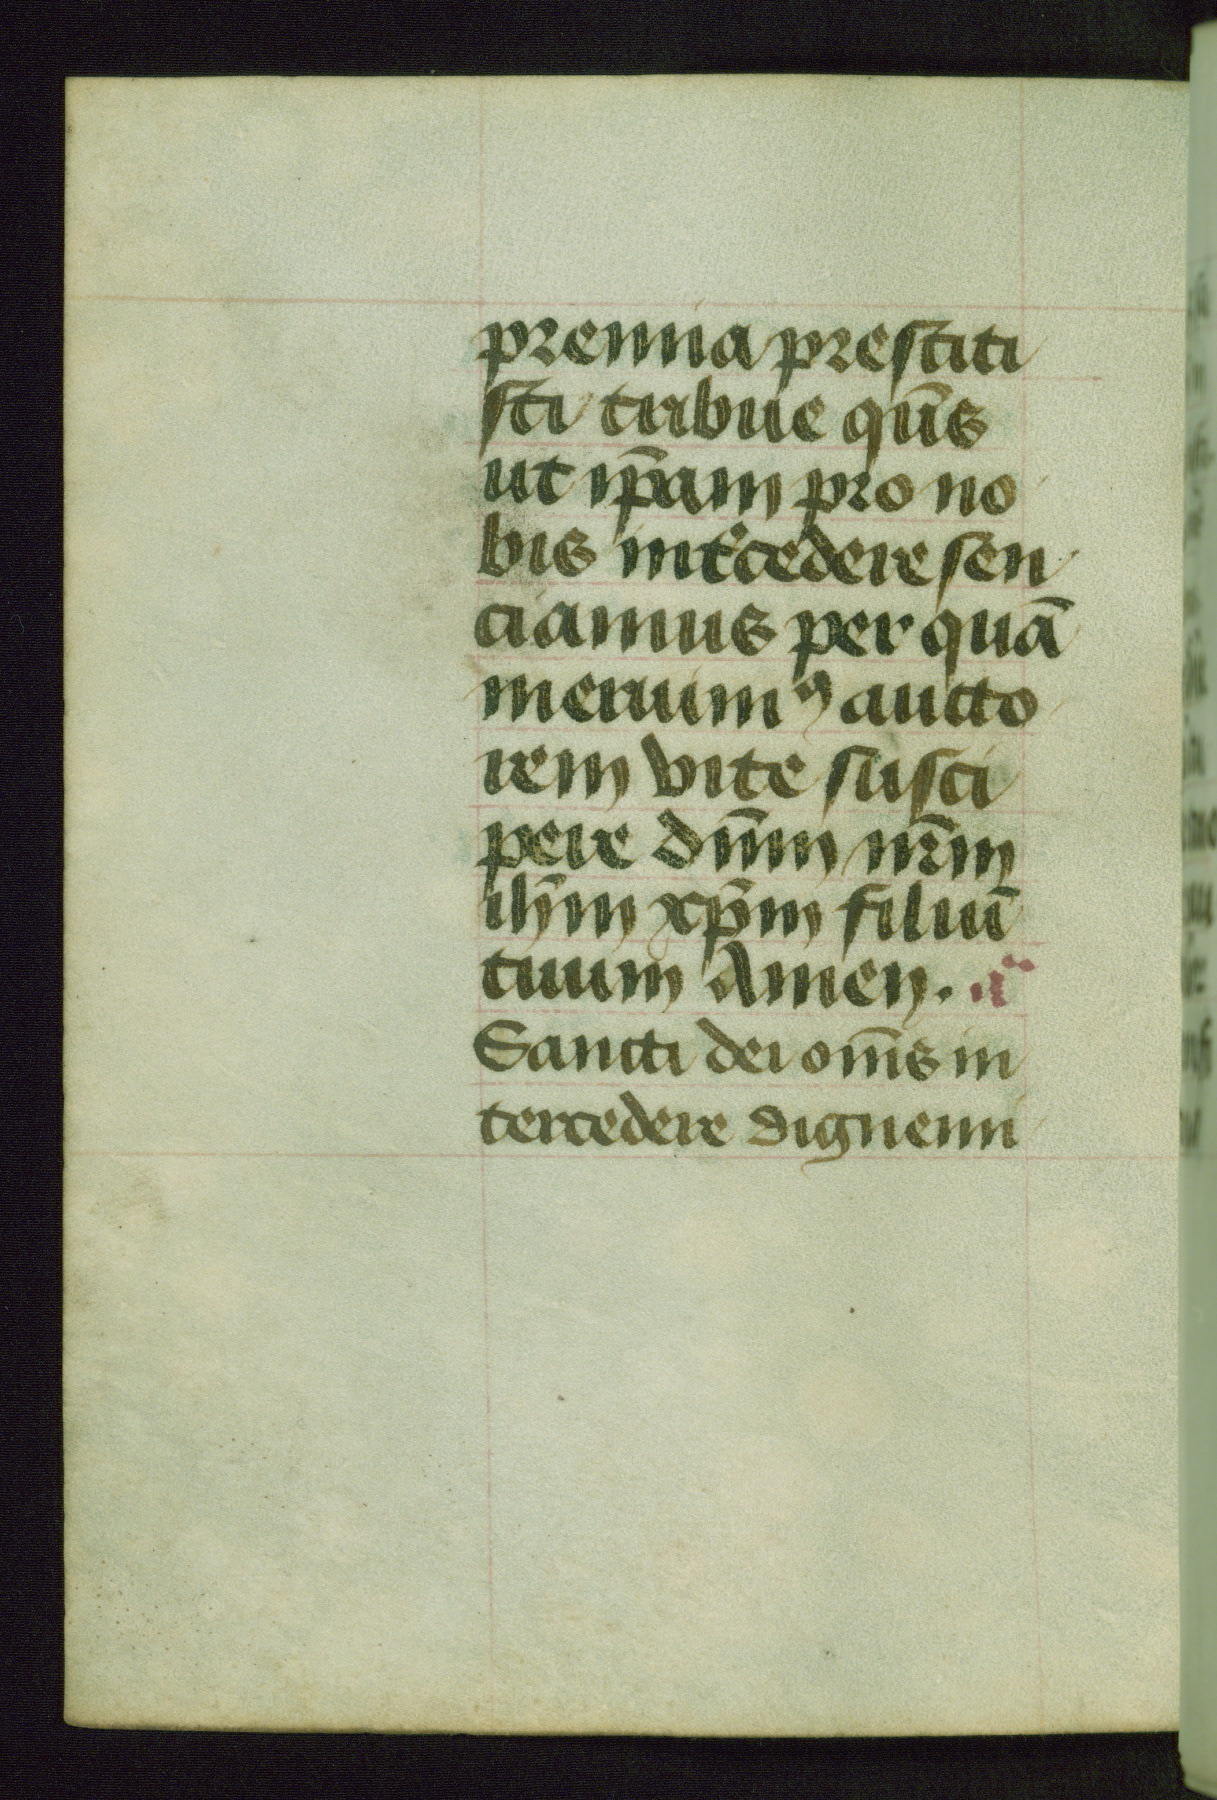 premia prestiti
sti tribue qu̅s
ut ip̅am pro no
bis int̅cedere sen
ciamus per qua̅
meruimꝰ aucto
rem vite susci
pere dn̅m nr̅m
ih̅m xp̅m filiu̅
tuum Amen. a̅
Sancti dei om̅s in
tercedere dignemi